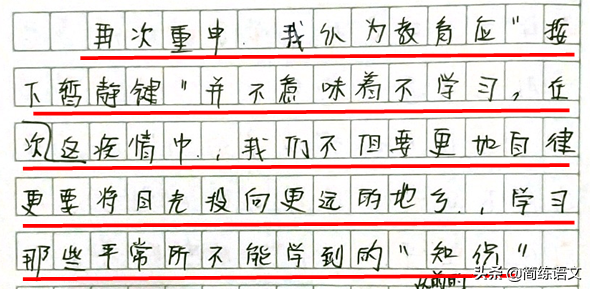 再次重申.我认为教育应"按
下暂静键"并不意味着不学习,在
次这疫情中.,我们不但要更加自律
更要将目光投向更远的地方.,学习
那些平常所不能学到的"知识"
头条@简练语文